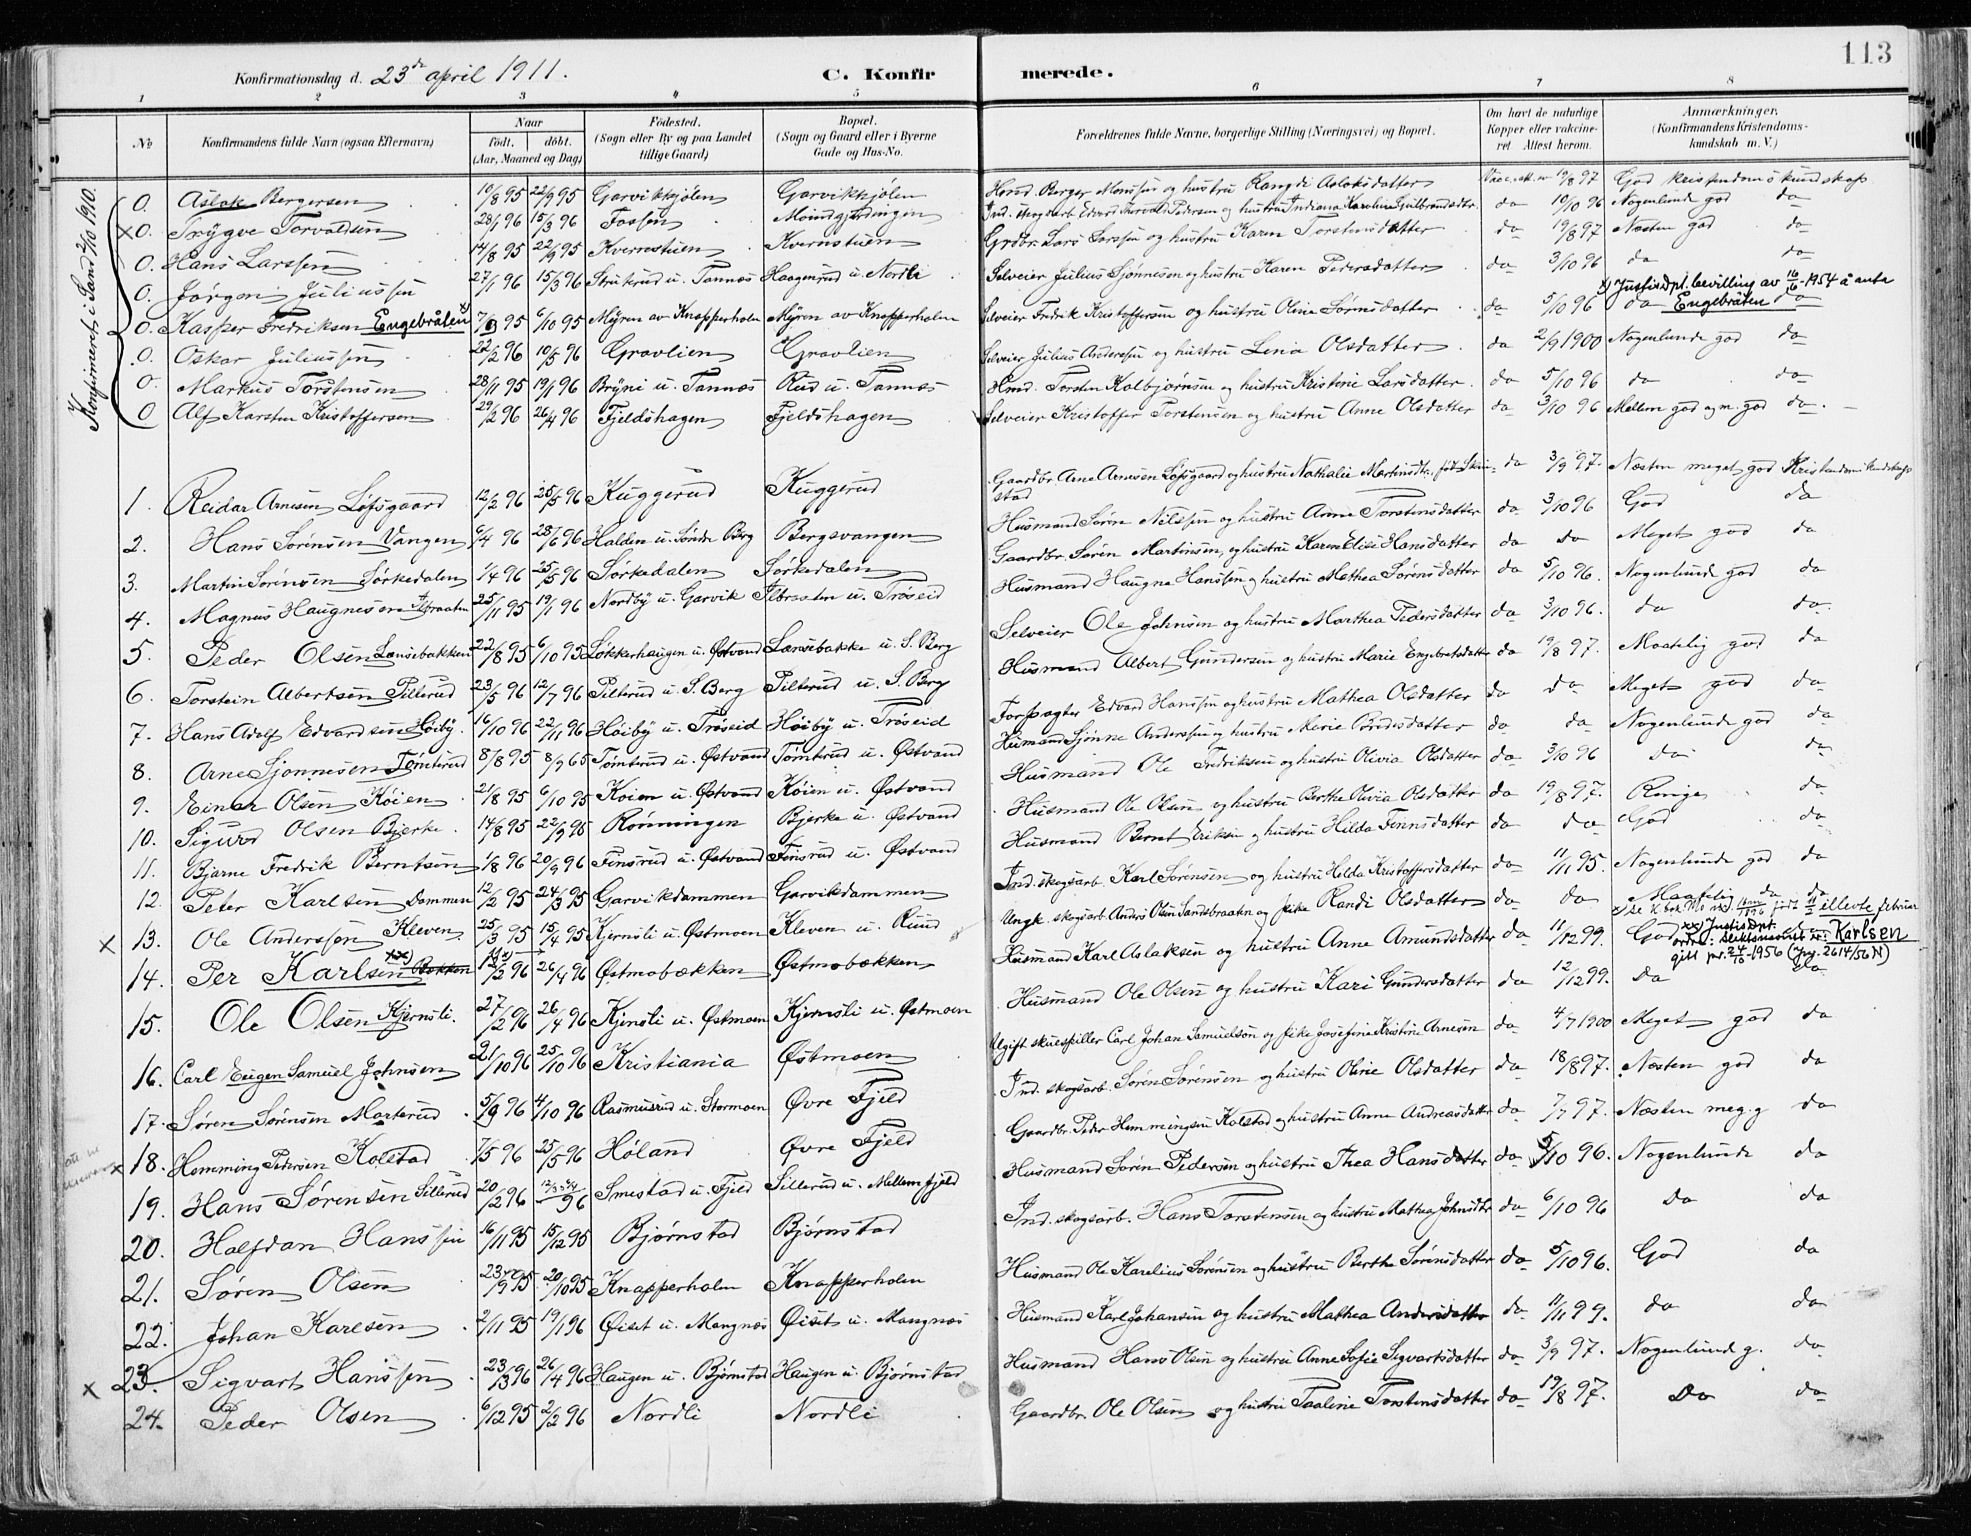 113
Konfirmationsdag d. 23de april 1911. C. Konfirmerede.
1 2 3 4 5 6 7 8
No Konfirmandens fulde Navn (ogsaa Efternavn) Naar født. døbt. (Aar, Maaned og Dag) Fødested. (Sogn eller By og paa Landet tillige Gaard) Bopæl. (Sogn og Gaard eller i Byerne Gade og Hus-No. Forældrenes fulde Navne, borgerlige Stilling (Næringsvei) og Bopæl. Om havt de naturlige Kopper eller vaccineret Attest herom. Anmærkninger. (Konfirmandens Kristendomskundskab m. V.)
Konfirmeret i Sand 2/10 1910.
0. Aslak Bergersen 10/8 95 22/9 95 Garvikkjølen Garvikkjølen Hmd. Berger Monssen og hustru Rangdi Aslaksdatter Vacc. att. av 19/8 97 God kristendomskundskap
x0. Trygve Torvaldsen 28/1 96 15/3 96 Fossen Ind. skogarb. Edvard Thorvald Pedersen og hustru Indiana Karoline Gulbrandsdtr. da 10/10 96 Nogenlunde god da
0. Hans Larssen 14/8 95 22/9 95 Kvernstuen Kvernstuen Grdbr. Lars Larssen og hustru Karen Torstensdatter da 19/8 97 Næsten god da
0. Jørgen Juliussen 27/1 96 15/3 96 Struterud u. Tannæs Haagenrud u. Nordli Selveier Julius Sjønnesen og hustru Karen Pedersdatter da 3/10 96 da da
x) Justisdpt. bevilling av 16/6-1954 å anta Engebråten
0. Kasper Fredriksen Engebråten x) 7/8 95 6/10 95 Myren av Knapperholm Myren av Knapperholm Selveier Fredrik Kristoffersen og hustru Oline Sørensdatter da 5/10 96 da da
0. Oskar Juliussen 22/2 96 10/5 96 Gravlien Gravlien Selveier Julius Anderssen og hustru Lena Olsdatter da 2/9 1900 Nogenlunde god da
0. Markus Torstensen 28/11 95 19/1 96 Bryni u. Tannæs Rud u. Tannæs Hmd. Torsten Kolbjørnsen og hustru Kristine Larsdatter da 5/10 96 da da
0 Alf Karsten Kristoffersen 29/2 96 26/4 96 Fjeldshagen Fjeldshagen Selveier Kristoffer Torstensen og hustru Anne Olsdatter da 3/10 96 Mellem god og m. god da.
1. Reidar Arnesen Løfsgaard 12/2 96 25/5 96 Kuggerud Kuggerud Gaardbr. Arne Arnesen Løfsgaard og hustru Nathalie Martinsdtr. født Skinstad da 3/9 97. Næsten meget god Kristendomskundskap
2. Hans Sørensen Vangen 6/4 96 28/6 96 Halden u. Søndre Berg Bergsvangen Husmand Søren Nilssen og hustru Anne Torstensdatter da 3/10 96 God da
3. Martin Sørensen Sørkedalen 1/4 96 25/5 96 Sørkedalen Sørkedalen Gaardbr. Søren Martinsen og hustru Karen Elise Hansdatter da da Meget god da
4. Magnus Haugnesen 25/11 95 19/1 96 Nordby u. Garvik u. Trøseid Husmand Haugne Hanssen og hustru Mathea Sørensdatter da 5/10 96. Nogenlunde god da
5. Peder Olsen Lænsebakken 22/8 95 6/10 95 Løkkerhaugen u. Østvand Lænsebakke u. S. Berg Selveier Ole Johnsen og hustru Marthea Pedersdatter da 3/10 96. da da.
6. Torstein Albertsen Pilterud 23/5 96 12/7 96 Pilterud u. S. Berg Pilterud u. S. Berg Husmand Albert Gundersen og hustru Marie Engebretsdatter da 19/8 97. Maatelig god da
7. Hans Adolf Edvardsen Høiby. 16/10 96 22/11 96 Høiby u. Trøseid Høiby u. Trøseid Forpagter Edvard Hanssen og hustru Mathea Olsdatter da da Meget god da
8. Arne Sjønnesen Tømterud 8/8 95 8/9 65 Tømterud u. Østvand Tømterud u. Østvand Husmand Sjønne Anderssen og hustru Marie Pedersdatter da da Nogenlunde god da
9. Einar Olsen Køien 21/8 95 6/10 95 Køien u. Østvand Køien u. Østvand Husmand Ole Fredriksen og hustru Olivia Olsdatter da 3/10 96 da da
10. Sigurd Olsen Bjerke 14/8 95 22/9 95 Rønningen Bjerke u. Østvand Husmand Ole Olsen og hustru Berthe Olivia Olsdatter da 19/8 97. Ringe da
11. Bjarne Fredrik Berntsen 1/8 96 20/9 96 Finsrud u. Østvand Finsrud u. Østvand Husmand Bernt Eriksen og hustru Hilda Finnsdatter da da God da
12. Peter Karlsen Dammen 12/2 95 24/3 95 Garvikdammen Garvikdammen Ind. skogsarb. Karl Sørensen og hustru Helda Kristoffersdatter da 11/11 95. Nogenlunde god da
x 13. Ole Anderssen Kleven 25/3 95 15/4 95 Kjernsli u. Østmoen Kleven u. Ruud Ungk. skogsarb. Anders Olsen Sandsbraaten og pike Randi Olsdatter da da Maatelig da da
14. Per Karlsen xx) Bækken 11/2 96 26/4 96 Østmobækken Østmobækken Husmand Karl Aslaksen og hustru Anne Amundsdatter da 11/12 99. God
ellevte februar
xx) Justisdpt. ordre: slektsnavnet er: Karlsen gitt pr. 24/10-1956 (Jnr. 2614/56 N)
15. Ole Olsen Kjernsli. 27/2 96 26/4 96 Kjernsli u. Østmoen Kjernsli u. Østmoen Husmand Ole Olsen og hustru Kari Gundersdatter da 12/12 99. da da
16. Carl Eugen Samuel Johnsen 21/10 96 25/10 96 Kristiania Østmoen Ugift skuespiller Carl Johan Samuelson og pike Josefine Kristine Arnesen da 4/7 1900 Meget god da
17. Søren Sørensen Morterud 5/9 96 4/10 96 Rasmusrud u. Stormoen Øvre Fjeld Ind. skogsarb. Søren Sørensen og hustru Oline Olsdatter da 18/8 97. Næsten god da
x 18. Hemming Pedersen Kolstad 7/5 96 25/5 96 Høland Øvre Fjeld Gaardbr. Peder Hemmingsen Kolstad og hustru Anne Andreasdatter da 7/7 97. Næsten meg. g da
19. Hans Sørensen Sillerud 20/2 96 96 Smestad u. Fjeld Sillerud u. Mellem fjeld Husmand Søren Pedersen og hustru Thea Hansdatter da 5/10 96. Nogenlunde da
20. Halfdan Hanssen 16/11 95 15/12 95 Bjørnstad Bjørnstad Ind. skogsarb. Hans Torstensen og hustru Mathea Johnsdtr da 6/10 96 Da da
21. Søren Olsen 23/9 95 20/10 95 Knapperholm Knapperholm Husmand Ole Karelius Sørensen og hustru Berthe Sørensdatter da 5/10 96. God da
22. Johan Karlsen 2/11 95 19/1 96 Øiset u. Mangnæs Øiset u. Mangnæs Husmand Karl Johansen og hustru Mathea Andersdatter da 11/11 99. da da
x 23. Sigvart Hanssen 23/3 96 26/4 96 Haugen u. Bjørnstad Haugen u. Bjørnstad Husmand Hans Olsen og hustru Anne Sofie Sigvartsdatter da 3/9 97. Nogenlund g. da
24. Peder Olsen 6/12 95 2/2 96 Nordli Nordli Gaardbr. Ole Olsen og hustru Paaline Torstensdatter da 19/8 97. Da da